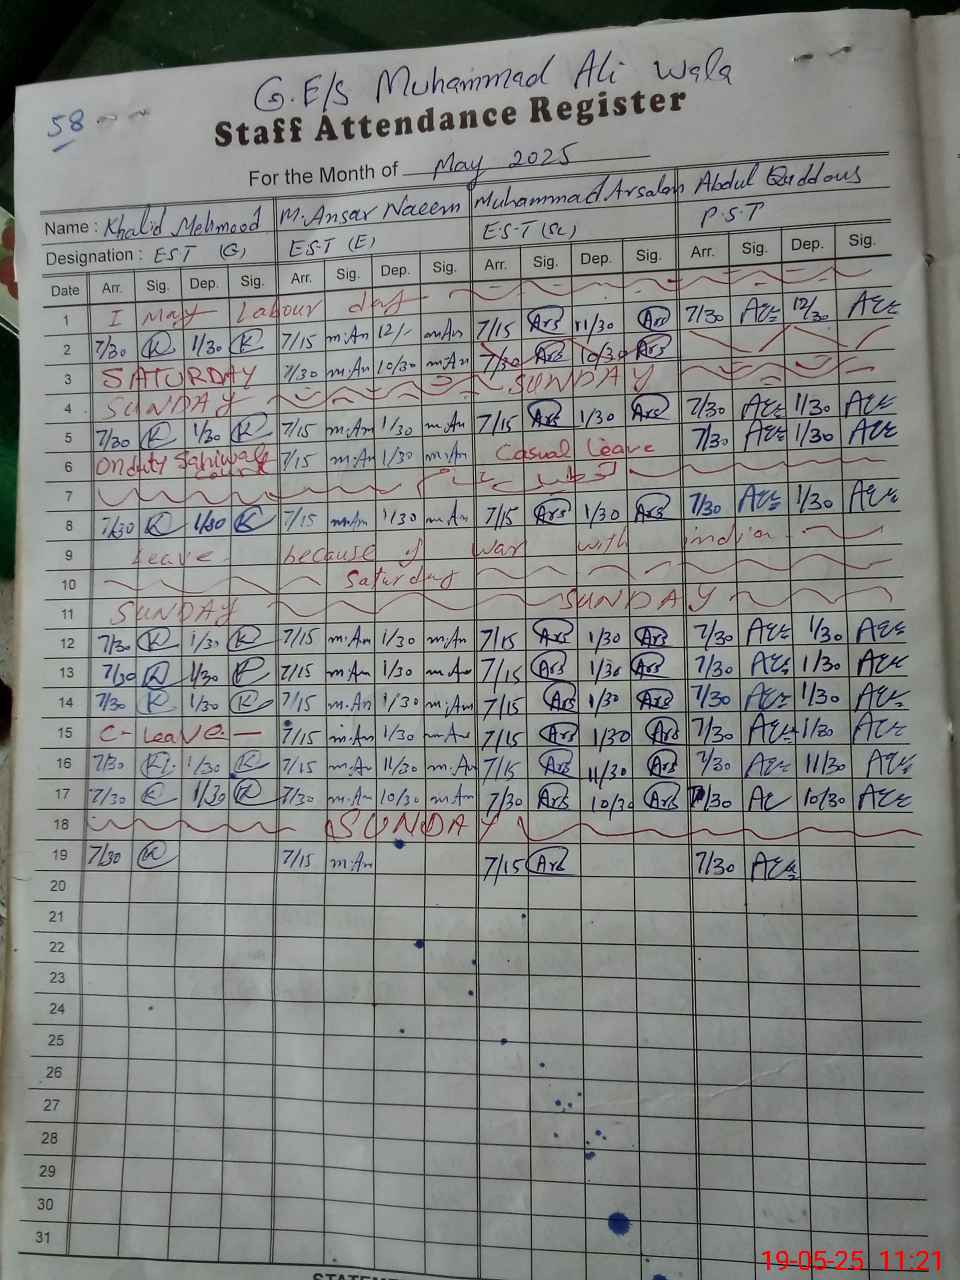 58
G.E/S Muhammad Ali Wala
Staff Attendance Register
For the Month of May 2025
Name : Khalid Mehmood M. Ansar Naeem Muhammad Arsalan Abdul Quddous
Designation : E.S.T (G) E.S.T (E) E.S.T (Sc) P.S.T
Date Arr. Sig. Dep. Sig. Arr. Sig. Dep. Sig. Arr. Sig. Dep. Sig. Arr. Sig. Dep. Sig.
1 I May Labour day
2 7/30 K 1/30 K 7/15 m.An 12/- m.An 7/15 Ars 11/30 Ars 7/30 12/30
3 SATURDAY 7/30 m.An 10/30 m.An 7/30 Ars 10/30 Ars
4 SUNDAY SUNDAY
5 7/30 K 1/30 K 7/15 m.An 1/30 m.An 7/15 Ars 1/30 Ars 7/30 1/30
6 On duty Sahiwal Court 7/15 m.An 1/30 m.An Casual Leave 7/30 1/30
7
8 7/30 K 1/30 K 7/15 m.An 1/30 m.An 7/15 Ars 1/30 Ars 7/30 1/30
9 Leave because of war with india
10 Saturday
11 SUNDAY SUNDAY
12 7/30 K 1/30 K 7/15 m.An 1/30 m.An 7/15 Ars 1/30 Ars 7/30 1/30
13 7/30 K 1/30 K 7/15 m.An 1/30 m.An 7/15 Ars 1/30 Ars 7/30 1/30
14 7/30 K 1/30 K 7/15 m.An 1/30 m.An 7/15 Ars 1/30 Ars 7/30 1/30
15 C- Leave - 7/15 m.An 1/30 m.An 7/15 Ars 1/30 Ars 7/30 1/30
16 7/30 K 1/30 K 7/15 m.An 11/30 m.An 7/15 Ars 11/30 Ars 7/30 11/30
17 7/30 K 1/30 K 7/30 m.An 10/30 m.An 7/30 Ars 10/30 Ars 7/30 10/30
18 SUNDAY
19 7/30 K 7/15 m.An 7/15 Ars 7/30
20
21
22
23
24
25
26
27
28
29
30
31
19-05-25 11:21